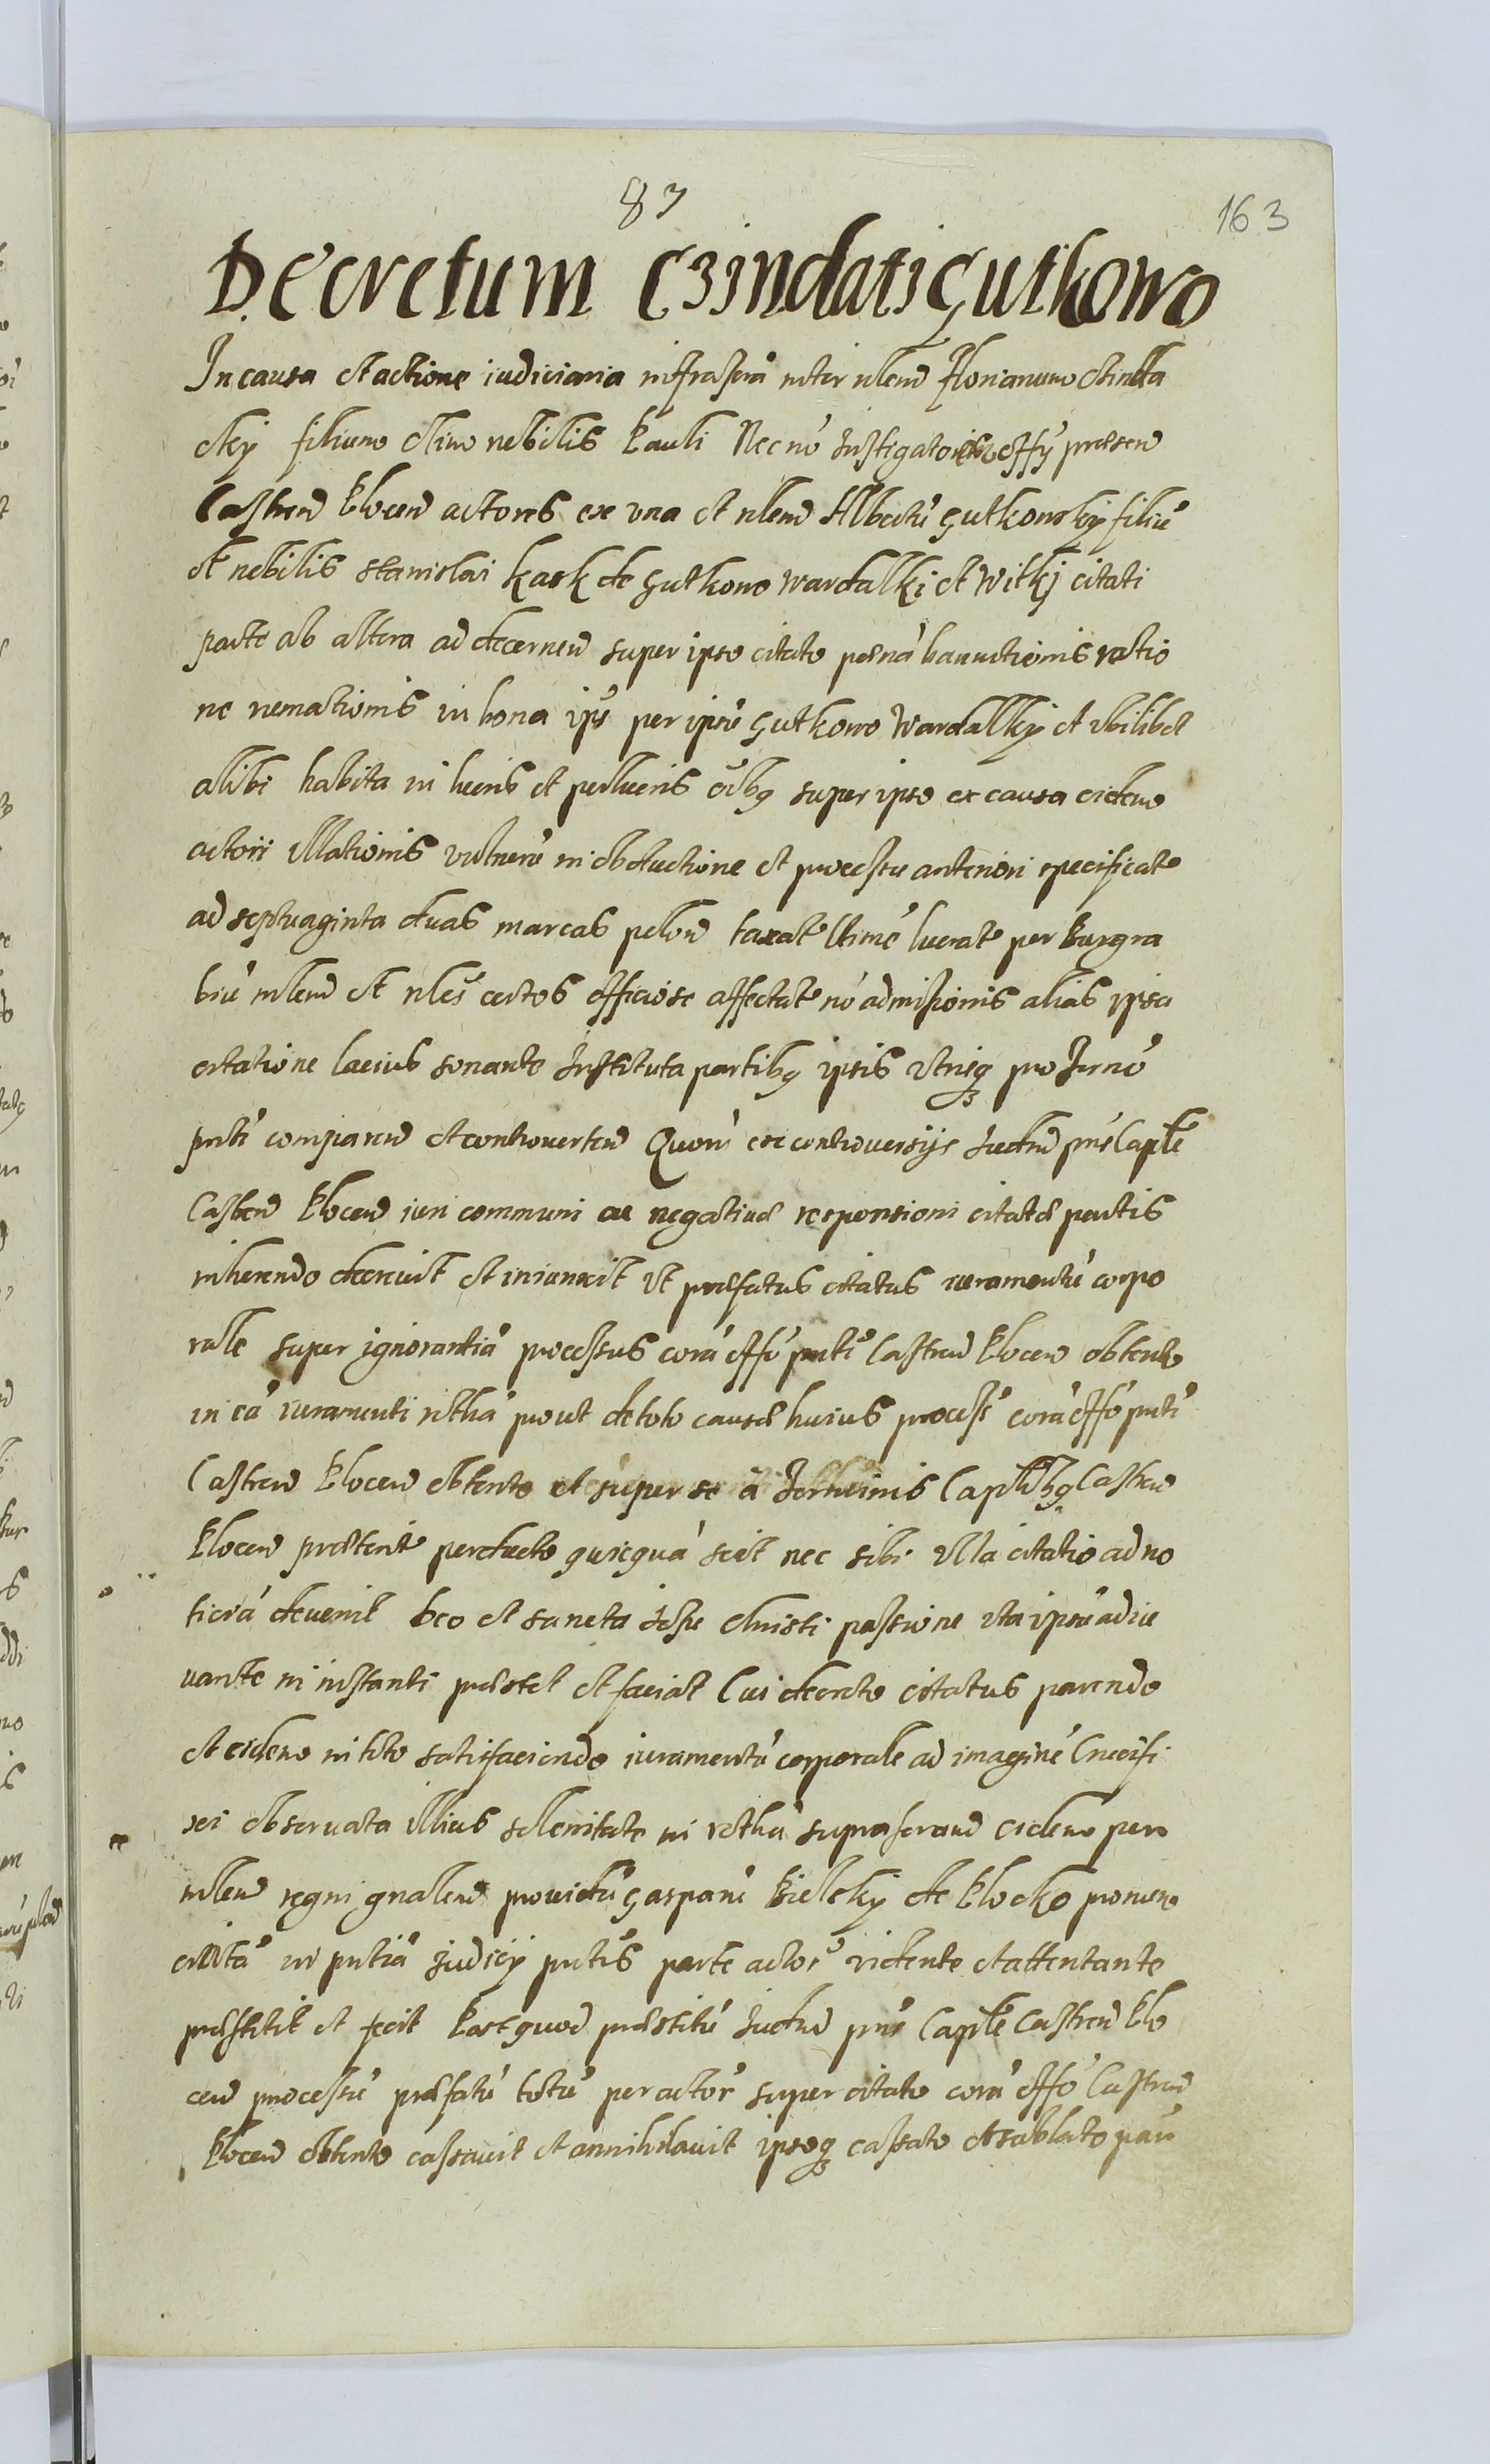 87
163
Decretum Czindati Gutkowo
In causa et actione iudiciaria infrascrā inter nlem Florianum Czinda
czky filium olim nobilis Pauli Nec nō Instigatorē officij praesen
Castren Plocen actores ex una et nlem Albertū Gutkowsky filiū
ol nobilis Stanislai Kask de Gutkowo Wardalki et Witkj citati
parte ab altera ad decernen super ipso citato poenā bannitionis ratio
ne remotionis in bona ips per ipsū Gutkowo Wardalky et ubilibet
alibi habita in lucris et perlucris oībq super ipso ex causa eidem
actori illationis vulnerū in obductione et processu anteriori specificato
ad septuaginta duas marcas polon taxat ultime lucrate per Burgra
biū nlem et nles certos officiose affectate nō admissionis alias ipsa
citatione lacius sonante Instituta partibq ipsis utrisq pro Terno
pnti comparen et controverten Quorū ex controversijs Iudm pns Caplē
Castren Plocen iuri communi ac negativae responsioni citatae partis
inherendo decrevit et iniunxit ut praefatus citatus iuramentū corpo
rale super ignorantiā processus corā offō pnti Castren Plocen obtento
in eā iuramenti rothā prout de toto causae huius processū corā offō pnti
Castren Plocen obtento et super se à Terminis Caplibq Castren
Plocen praeterito perducto quicquā scit nec sibi ulla citatio ad no
ticiā devenit Deo et sancta Iesu Christi passione ita ipsū adiu
vante in instanti praestet et faciat Cui decreto citatus parendo
et eidem in toto satisfaciendo iuramentū corporale ad imaginē Crucifi
xi observata illius solenitate in rotha suprascran eidem per
nlem regni gnalem providū Gasparū Bielsky de Plocko pronun
ciatā in pntia Iudicij pntis parte actor vidente et attentante
praestitit et fecit Post quod praestitū Iudm pns Caple Castren Plo
cen processū praefatū totū per actor super citato corā offō Castren
Plocen obtento cassavit et annihilavit ipsoq cassato et sublato par